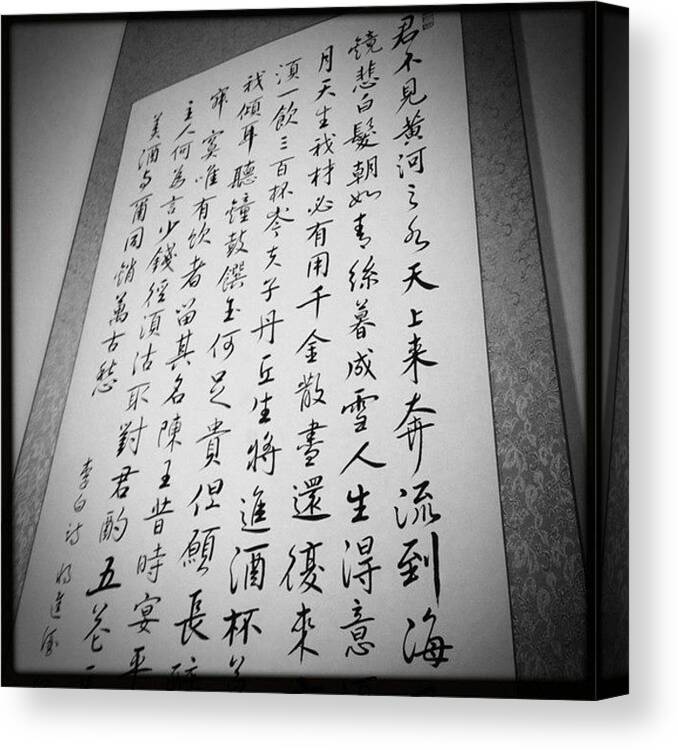 君不見黃河之水天上来奔流到海
鏡悲白髮朝如青絲暮成雪人生得意
月天生我材必有用千金散盡還復来
須一飲三百杯岑夫子丹丘生將進酒杯莫
我傾耳聽鐘鼓饌玉何足貴但願長醉
寂寞唯有飲者留其名陳王昔時宴平
主人何為言少錢徑須沽取對君酌五花
美酒与爾同銷萬古愁
李白詩 將進酒